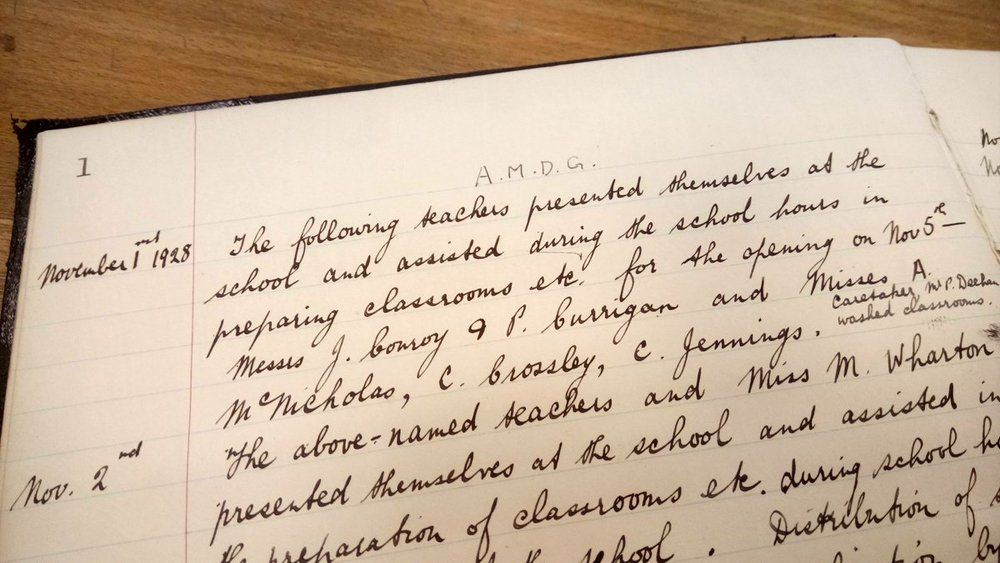 1
A.M.D.G.
November 1 1928 The following teachers presented themselves at the
school and assisted during the school hours in
preparing classrooms etc. for the opening on Nov 5th
Messrs J. Conroy & P. Currigan and Misses A.
caretaker Mr P. Deehan
washed classrooms.
McNicholas, C. Crossley, C. Jennings.
Nov. 2nd The above-named teachers and Miss M. Wharton
presented themselves at the school and assisted in
the preparation of classrooms etc. during school
the school. Distribution of
by